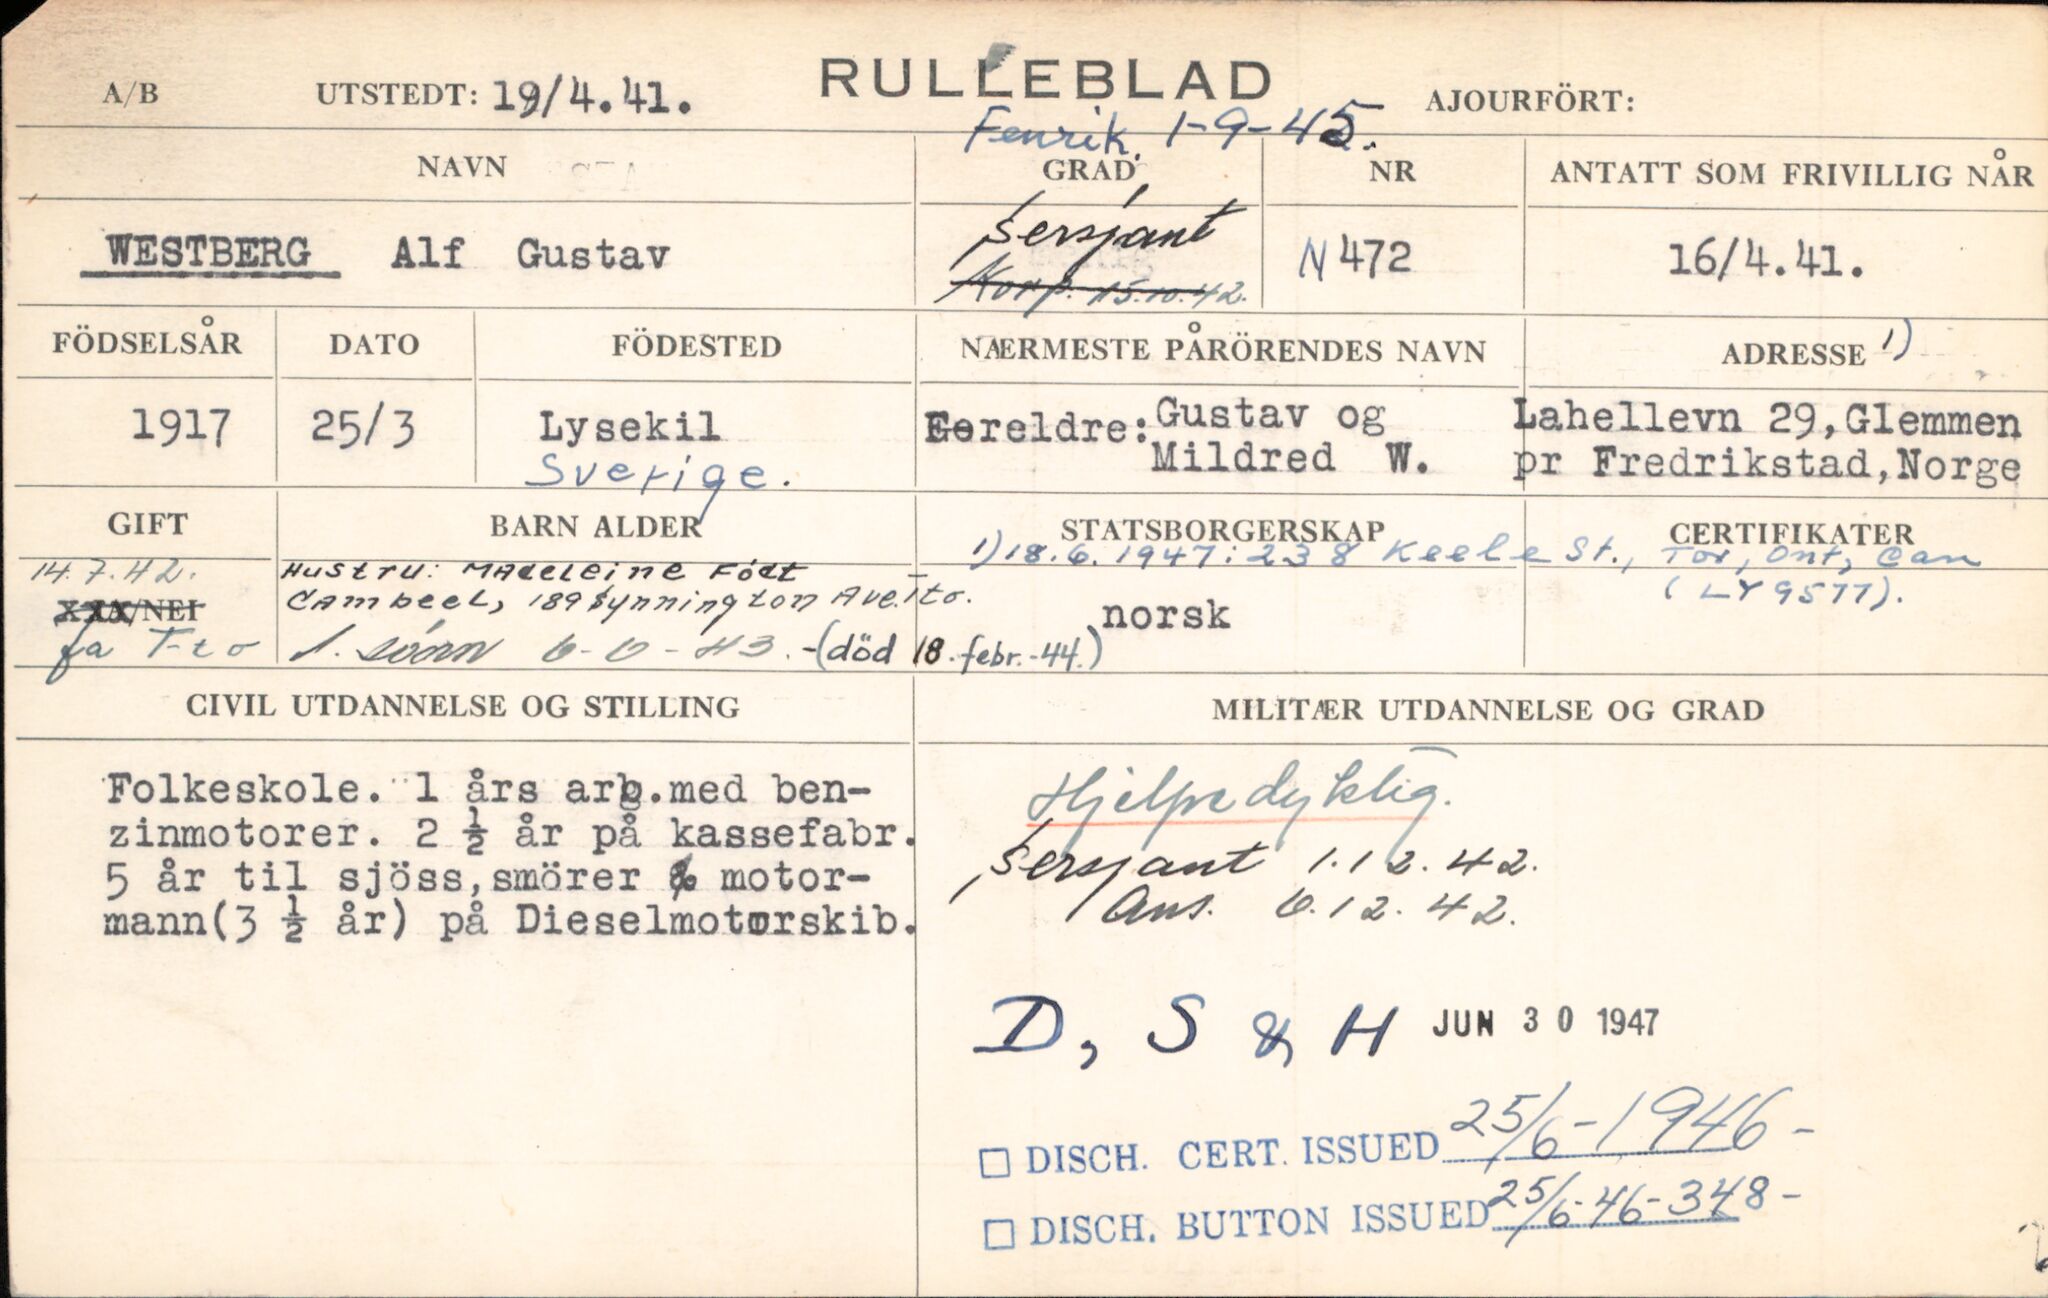 RULLEBLAD
A/B UTSTEDT: 19/4.41. AJOURFÖRT:
Fenrik. 1-9-45.
NAVN GRAD NR ANTATT SOM FRIVILLIG NÅR
WESTBERG Alf Gustav Sersjant N 472 16/4.41.
Korp. 15.10.42.
FÖDSELSÅR DATO FÖDESTED NÆRMESTE PÅRÖRENDES NAVN ADRESSE 1)
1917 25/3 Lysekil Foreldre: Gustav og Lahellevn 29, Glemmen
Sverige. Mildred W. pr Fredrikstad, Norge
GIFT BARN ALDER STATSBORGERSKAP CERTIFIKATER
1) 18.6.1947: 238 Keele St., Tor, Ont, Can
(LY 9577).
14.7.42. Hustru: Madeleine Födt
XXX/NEI Cambeel, 189 Synnington Ave. Tto. norsk
fa T-to 1. sönn 6-6-43. - (död 18. febr.-44.)
CIVIL UTDANNELSE OG STILLING MILITÆR UTDANNELSE OG GRAD
Folkeskole. 1 års arb. med ben-
zinmotorer. 2 ½ år på kassefabr.
5 år til sjöss, smörer & motor-
mann(3 ½ år) på Dieselmotorskib.
Hjelpedyktig.
Sersjant 1.12.42.
Ans. 6.12.42.
D, S & H JUN 30 1947
DISCH. CERT. ISSUED 25/6-1946-
DISCH. BUTTON ISSUED 25/6-46-348-